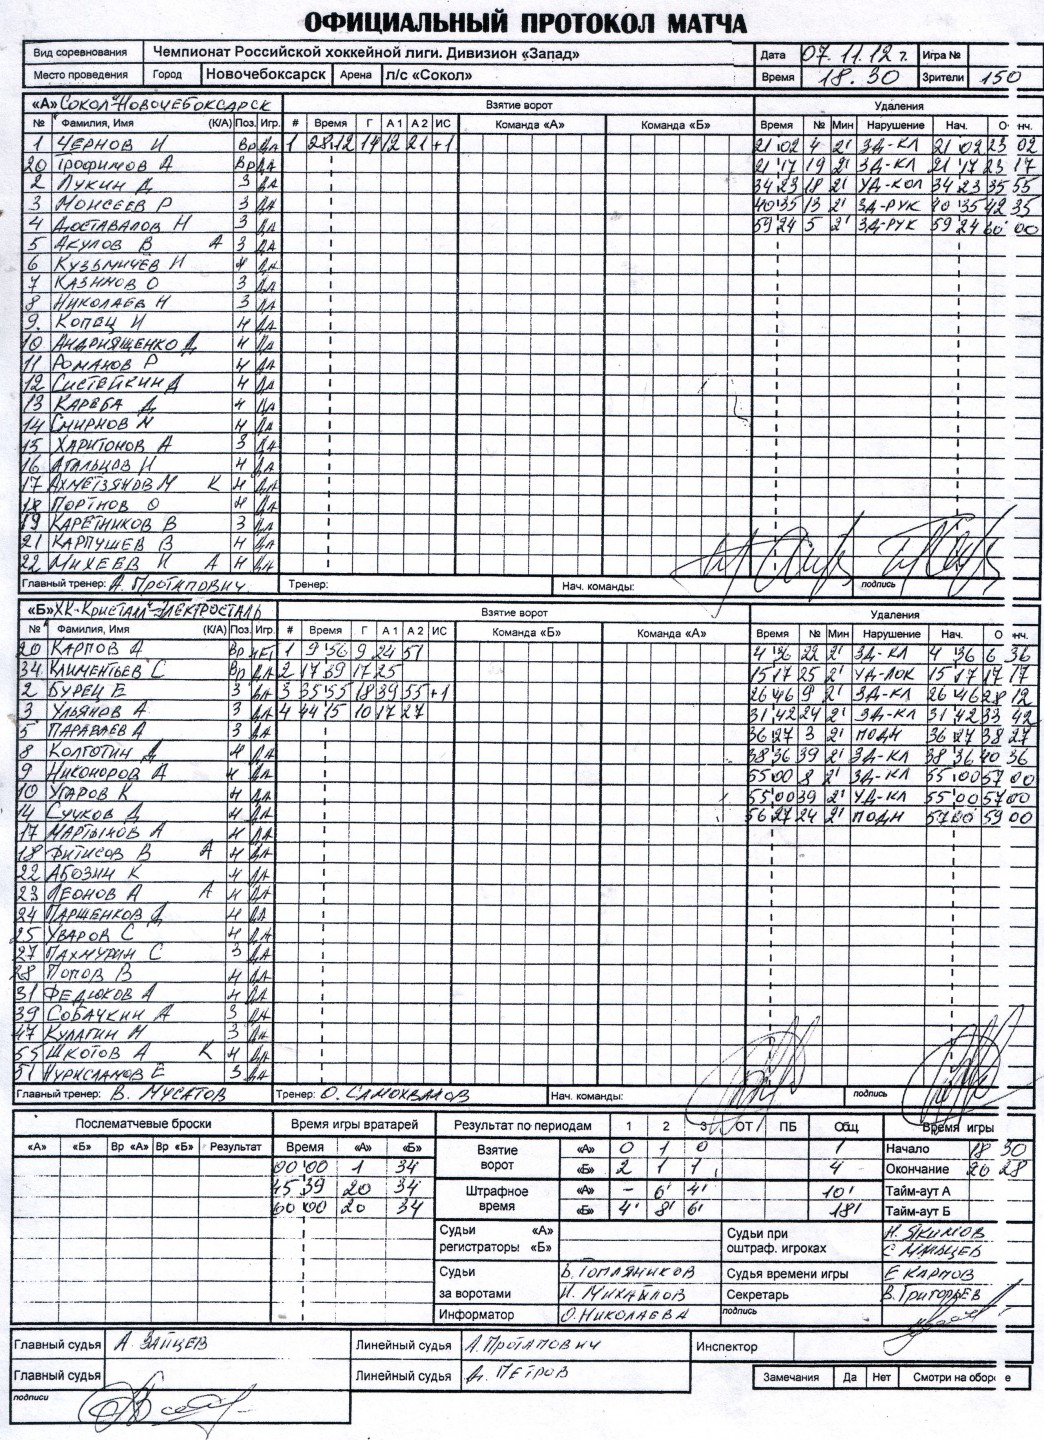 ОФИЦИАЛЬНЫЙ ПРОТОКОЛ МАТЧА
Вид соревнования Чемпионат Российской хоккейной лиги. Дивизион «Запад» Дата 07.11.12 г. Игра №
Место проведения Город Новочебоксарск Арена л/с «Сокол» Время 18.30 Зрители 150
«А» Сокол Новочебоксарск Взятие ворот Удаления
№ Фамилия, Имя (К/А) Поз. Игр. # Время Г А1 А2 ИС Команда «А» Команда «Б» Время № Мин Нарушение Нач. Окнч.
1 Чернов И Вр да 1 28 12 14 12 21 +1 21 02 4 2' ЗД-КЛ 21 02 23 02
20 Трофимов А Вр да 21 17 19 2' ЗД-КЛ 21 17 23 17
2 Лукин Д З да 34 23 18 2' УД-КОЛ 34 23 35 55
3 Моисеев Р З да 40 35 13 2' ЗД-РУК 40 35 42 35
4 Доставалов Н З да 59 24 5 2' ЗД-РУК 59 24 60 00
5 Акулов В А З да
6 Кузьмичёв И Н да
7 Казинов О З да
8 Николаев Н З да
9. Копец И Н да
10 Андриященко Д Н да
11 Романов Р Н да
12 Систейкин Д Н да
13 Кареба Д Н да
14 Смирнов М Н да
15 Харитонов А З да
16 Агальцов И Н да
17 Ахметзянов М К Н да
18 Портнов О Н да
19 Каретников В З да
21 Карпушев В Н да
22 Михеев И А Н да
Главный тренер: А. Протапович Тренер: Нач. команды: подпись
«Б» ХК-Кристалл-Электросталь Взятие ворот Удаления
№ Фамилия, Имя (К/А) Поз. Игр. # Время Г А1 А2 ИС Команда «Б» Команда «А» Время № Мин Нарушение Нач. Окнч.
20 Карпов А Вр нет 1 9 56 9 24 51 4 36 22 2' ЗД-КЛ 4 36 6 36
34 Климентьев С Вр да 2 17 39 17 25 15 17 25 2' УД-ЛОК 15 17 17 17
2 Бурец Е З да 3 35 55 18 39 55 +1 26 46 9 2' ЗД-КЛ 26 46 28 12
3 Ульянов А З да 4 44 15 10 17 27 31 42 24 2' ЗД-КЛ 31 42 33 42
5 Параваев А З да 36 27 3 2' ПОДН 36 27 38 27
8 Колготин Д Н да 38 36 39 2' ЗД-КЛ 38 36 40 36
9 Никоноров А Н да 55 00 8 2' ЗД-КЛ 55 00 57 00
10 Угаров К Н да 55 00 39 2' УД-КЛ 55 00 57 00
14 Сучков Д Н да 56 27 24 2' ПОДН 57 00 59 00
17 Мартынов А Н да
18 Фитисов В А Н да
22 Абозин К Н да
23 Леонов А А Н да
24 Паршенков Д Н да
25 Уваров С Н да
27 Пахмурин С З да
28 Попов В Н да
31 Федюков А Н да
39 Собачкин А З да
47 Кулагин М З да
55 Шкотов А К Н да
51 Нурисламов Е З да
Главный тренер: В. Мусатов Тренер: О. Самохвалов Нач. команды: подпись
Послематчевые броски Время игры вратарей Результат по периодам 1 2 3 ОТ ПБ Общ Время игры
«А» «Б» Вр «А» Вр «Б» Результат Время «А» «Б» Взятие ворот «А» 0 1 0 1 Начало 18 30
00 00 1 34 «Б» 2 1 1 4 Окончание 20 28
45 39 20 34 Штрафное время «А» - 6' 4' 10' Тайм-аут А
60 00 20 34 «Б» 4' 8' 6' 18' Тайм-аут Б
Судьи «А» Судьи при Н. Якимов
регистраторы «Б» оштраф. игроках
Судьи В. Топляников Судья времени игры Е Карпов
за воротами И. Михайлов Секретарь В. Григорьев
Информатор О. Николаева подпись
Главный судья А. Зайцев Линейный судья А. Протапович Инспектор
Главный судья Линейный судья Д. Петров Замечания Да Нет Смотри на обороте
подписи